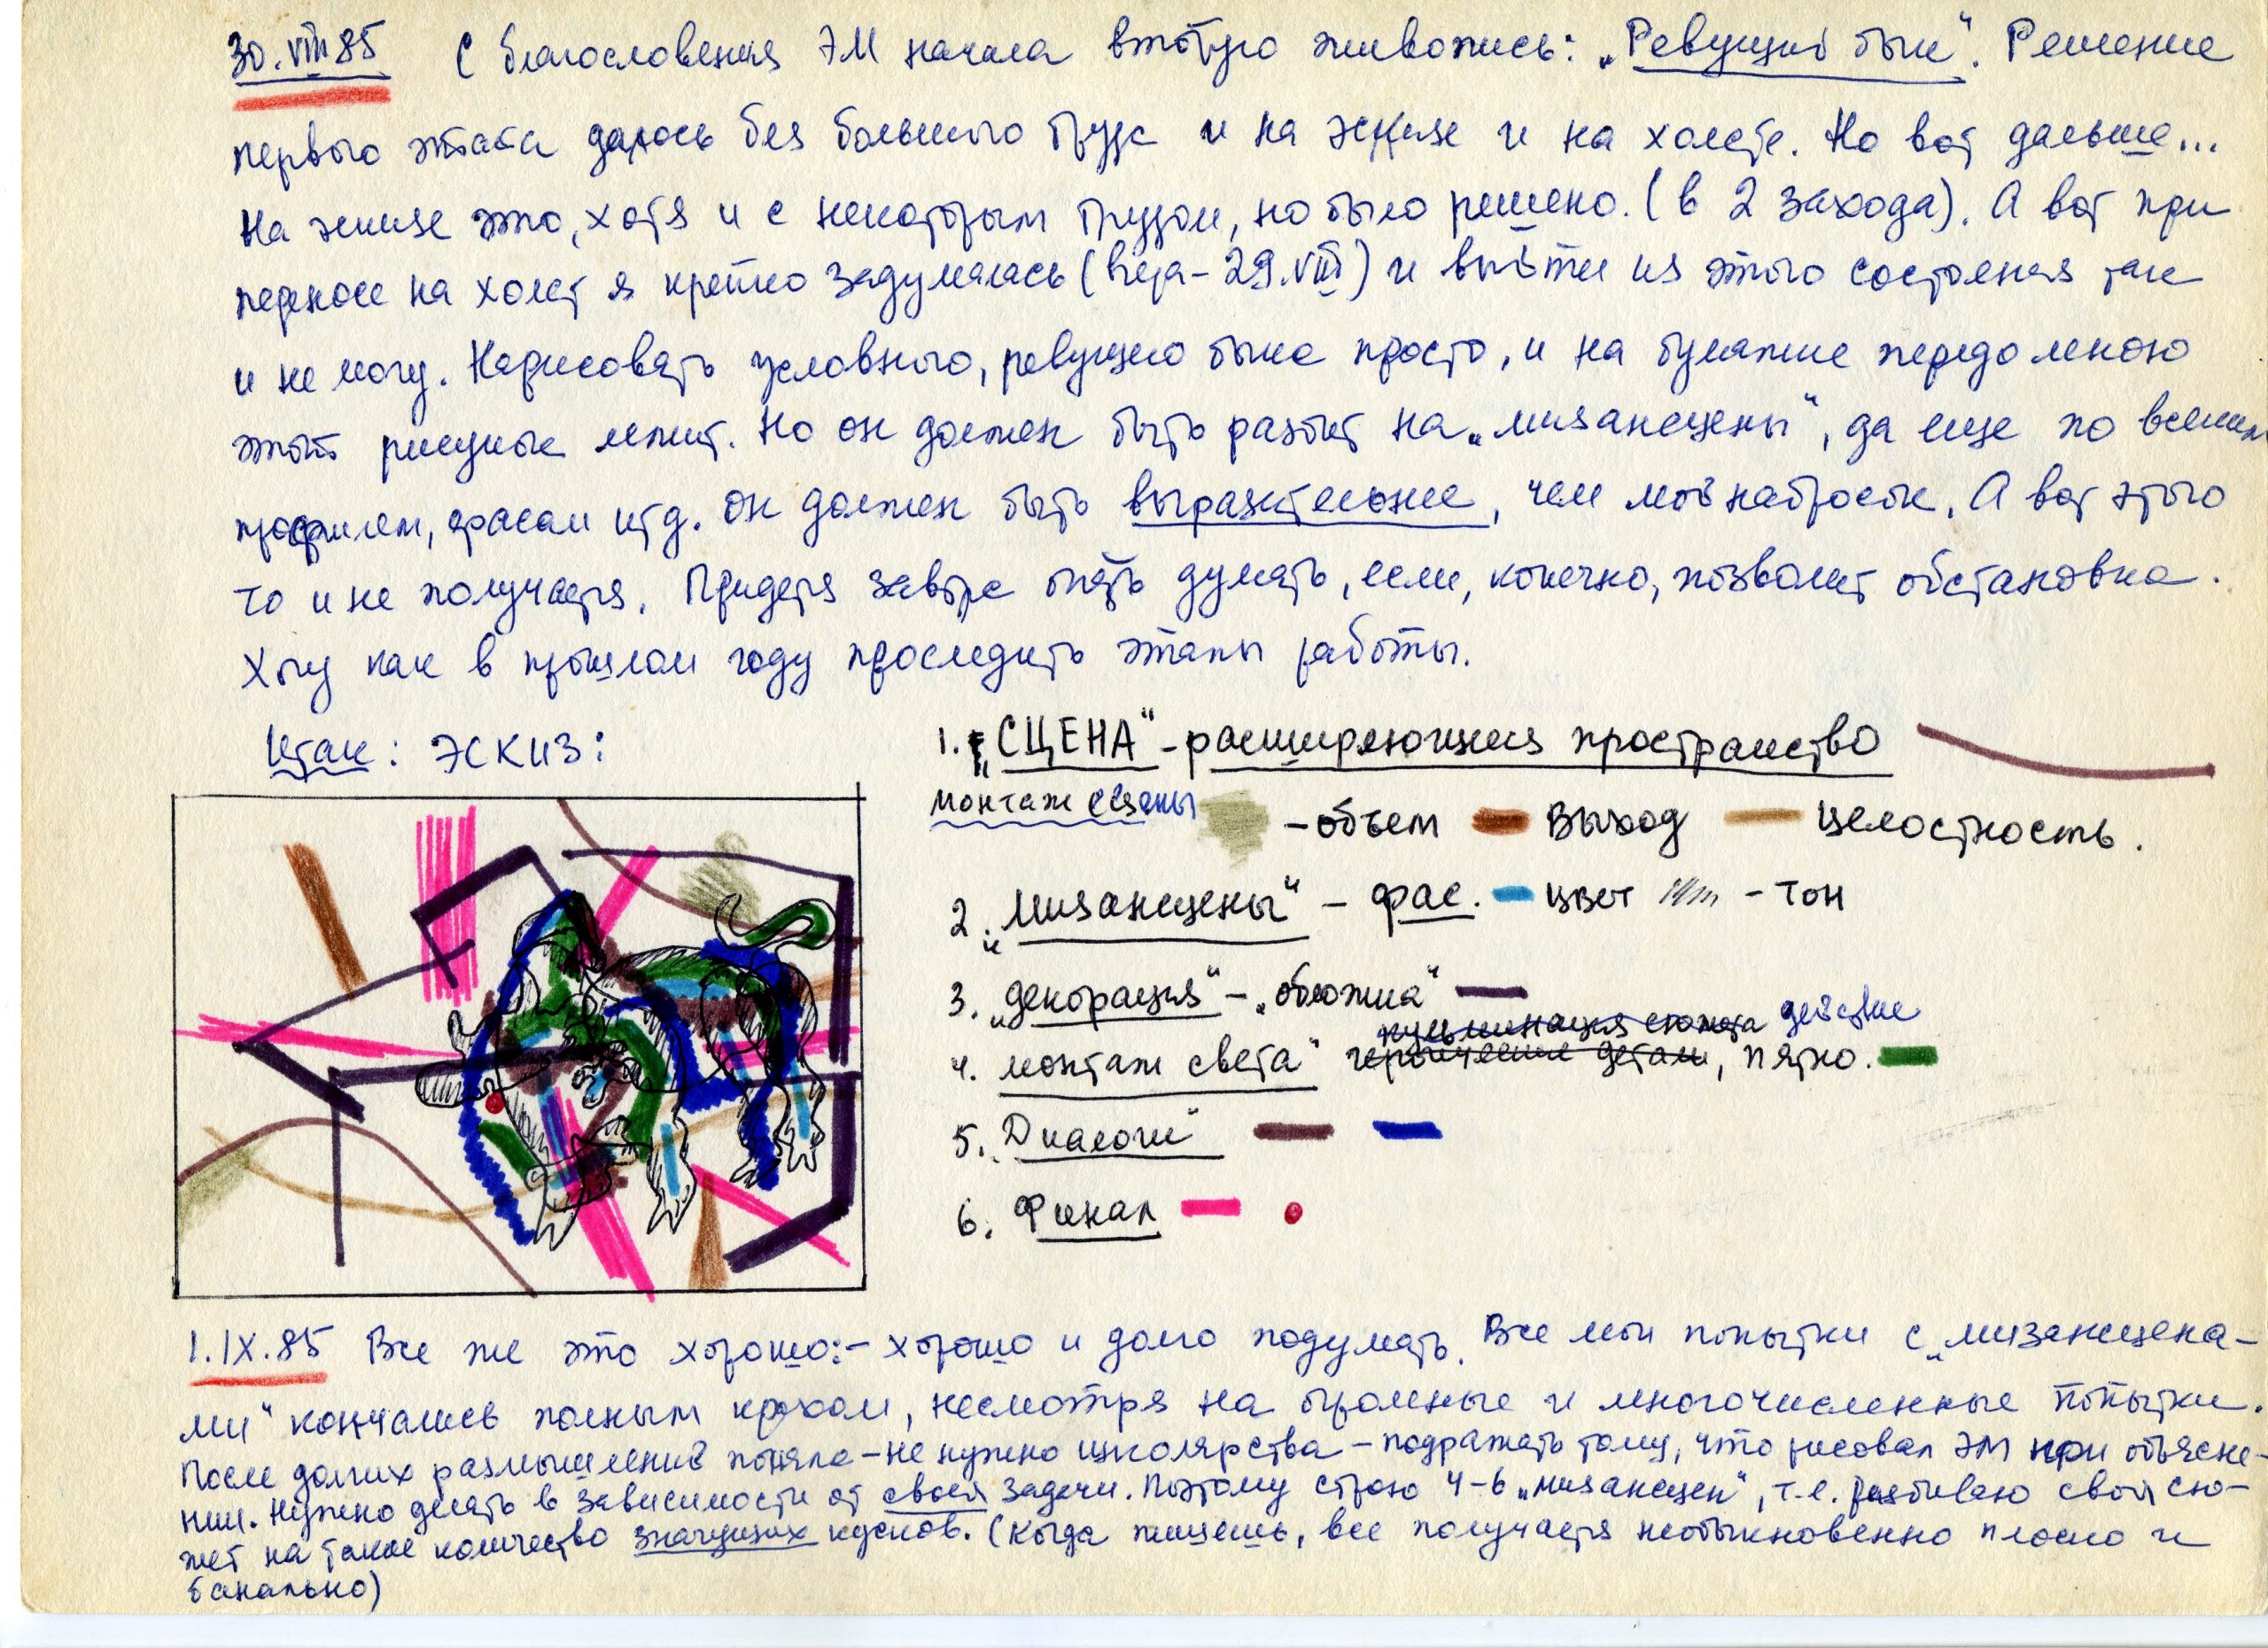 30.VIII 85 С благословения ЭМ начала вторую живопись: „Ревущий бык“. Решение
первого этапа далось без большого труда и на эскизе и на холсте. Но вот дальше...
На эскизе это, хотя и с некоторым трудом, но было решено. (в 2 захода). А вот при
переносе на холст я крепко задумалась (вчера - 29.VIII) и выйти из этого состояния так
и не могу. Нарисовать условного, ревущего быка просто, и на бумажке передо мною
этот рисунок лежит. Но он должен быть разбит на „мизансцены“, да еще по всяким
профилям, фасам итд. Он должен быть выразительнее, чем мой набросок. А вот этого
то и не получается. Придется завтра опять думать, если, конечно, позволит обстановка.
Хочу как в прошлом году проследить этапы работы.
Итак: ЭСКИЗ:
1. „СЦЕНА“ - расширяющееся пространство
монтаж сцены - объем выход целостность.
2. „Мизансцены“ - фас. цвет - тон
3. „декорация“ - „обложка“
кульминация сюжета действие
4. монтаж света“ детали, пятно.
5. Диалоги“
6. Финал
1.IX.85 Все же это хорошо: - хорошо и долго подумать. Все мои попытки с „мизансцена-
ми“ кончались полным крахом, несмотря на огромные и многочисленные попытки.
После долгих размышлений поняла - не нужно школярства - подражать тому, что рисовал ЭМ при объясне-
нии. Нужно делать в зависимости от своей задачи. Поэтому строю 4-6 „мизансцен“, т.е. разбиваю свой сю-
жет на такое количество значущих кусков. (Когда пишешь, все получается необыкновенно плоско и
банально)